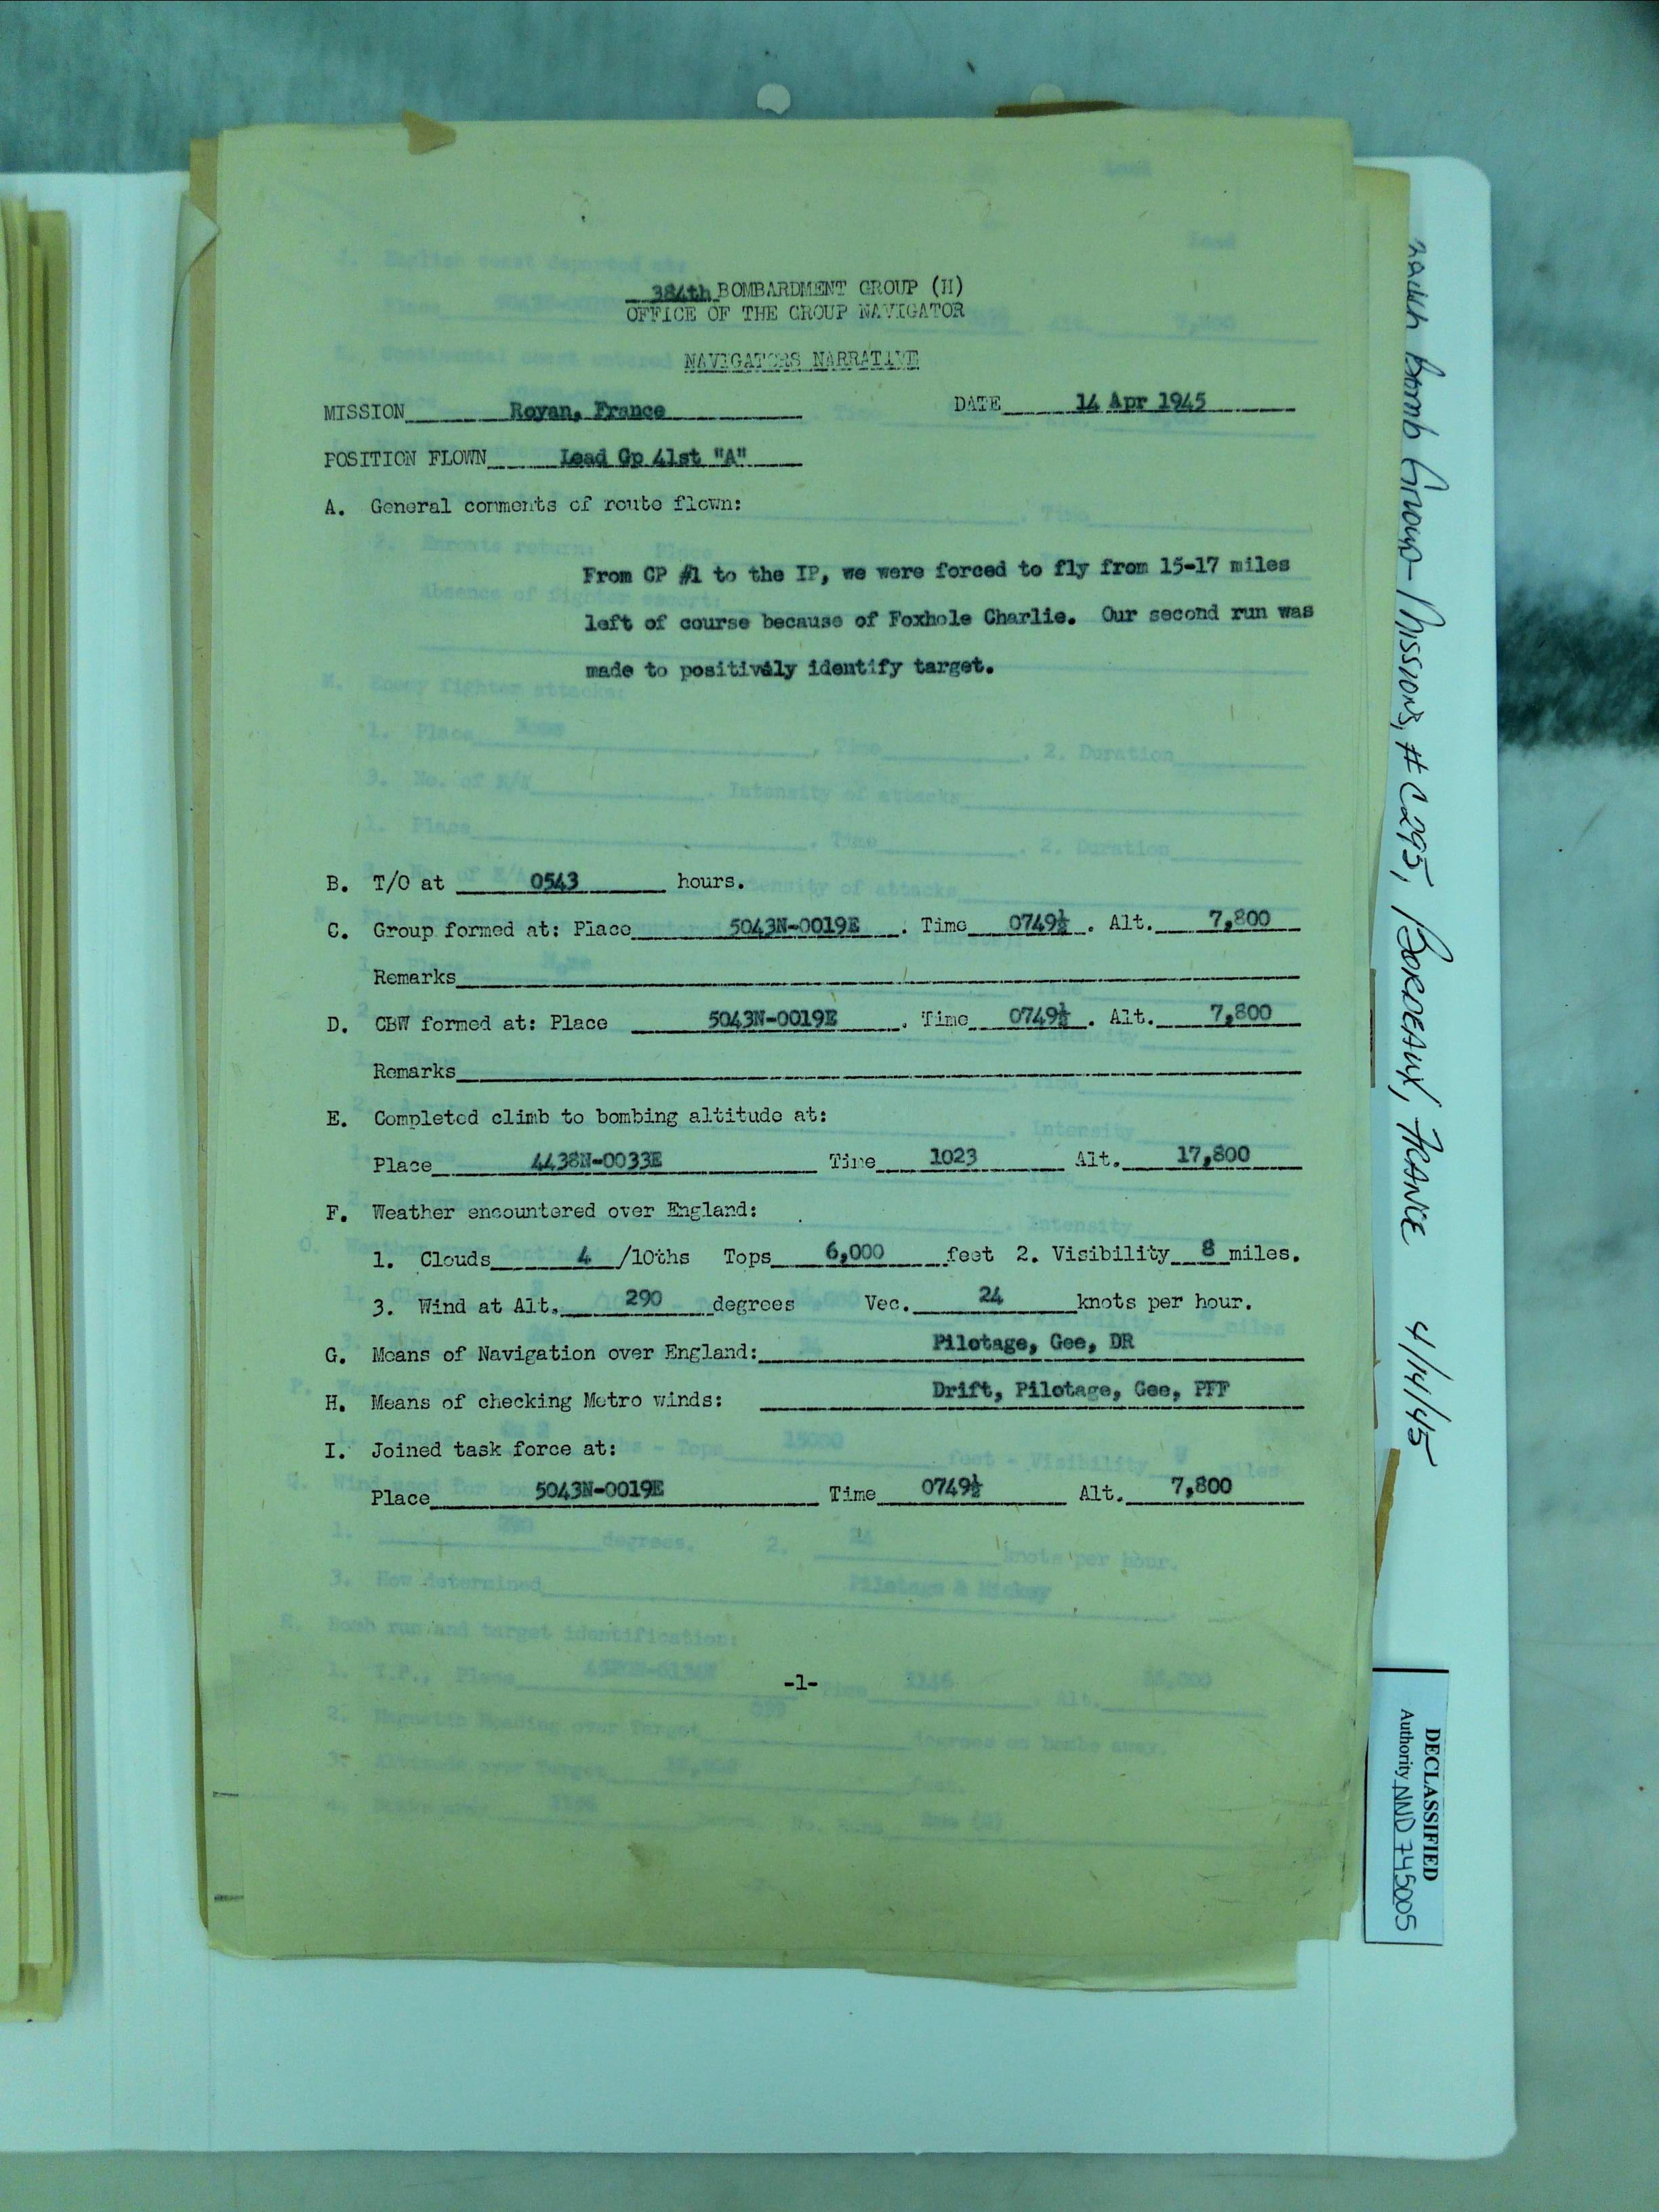 384th BOMBARDMENT GROUP (H)
OFFICE OF THE GROUP NAVIGATOR
NAVIGATORS NARRATIVE
MISSION Royan, France DATE 14 Apr 1945
POSITION FLOWN Lead Gp 41st "A"
A. General comments of route flown:
From CP #1 to the IP, we were forced to fly from 15-17 miles
left of course because of Foxhole Charlie. Our second run was
made to positively identify target.
B. T/O at 0543 hours.
C. Group formed at: Place 5043N-0019E . Time 0749½ . Alt. 7,800
Remarks
D. CBW formed at: Place 5043N-0019E . Time 0749½ . Alt. 7,800
Remarks
E. Completed climb to bombing altitude at:
Place 4438N-0033E Time 1023 Alt. 17,800
F. Weather encountered over England:
1. Clouds 4 /10ths Tops 6,000 feet 2. Visibility 8 miles.
3. Wind at Alt. 290 degrees Vec. 24 knots per hour.
G. Means of Navigation over England: Pilotage, Gee, DR
H. Means of checking Metro winds: Drift, Pilotage, Gee, PFF
I. Joined task force at:
Place 5043N-0019E Time 0749½ Alt. 7,800
-1-
Bomb Group- Missions, # C295, BORDEAUX, FRANCE 4/14/45
DECLASSIFIED
Authority NND 745005